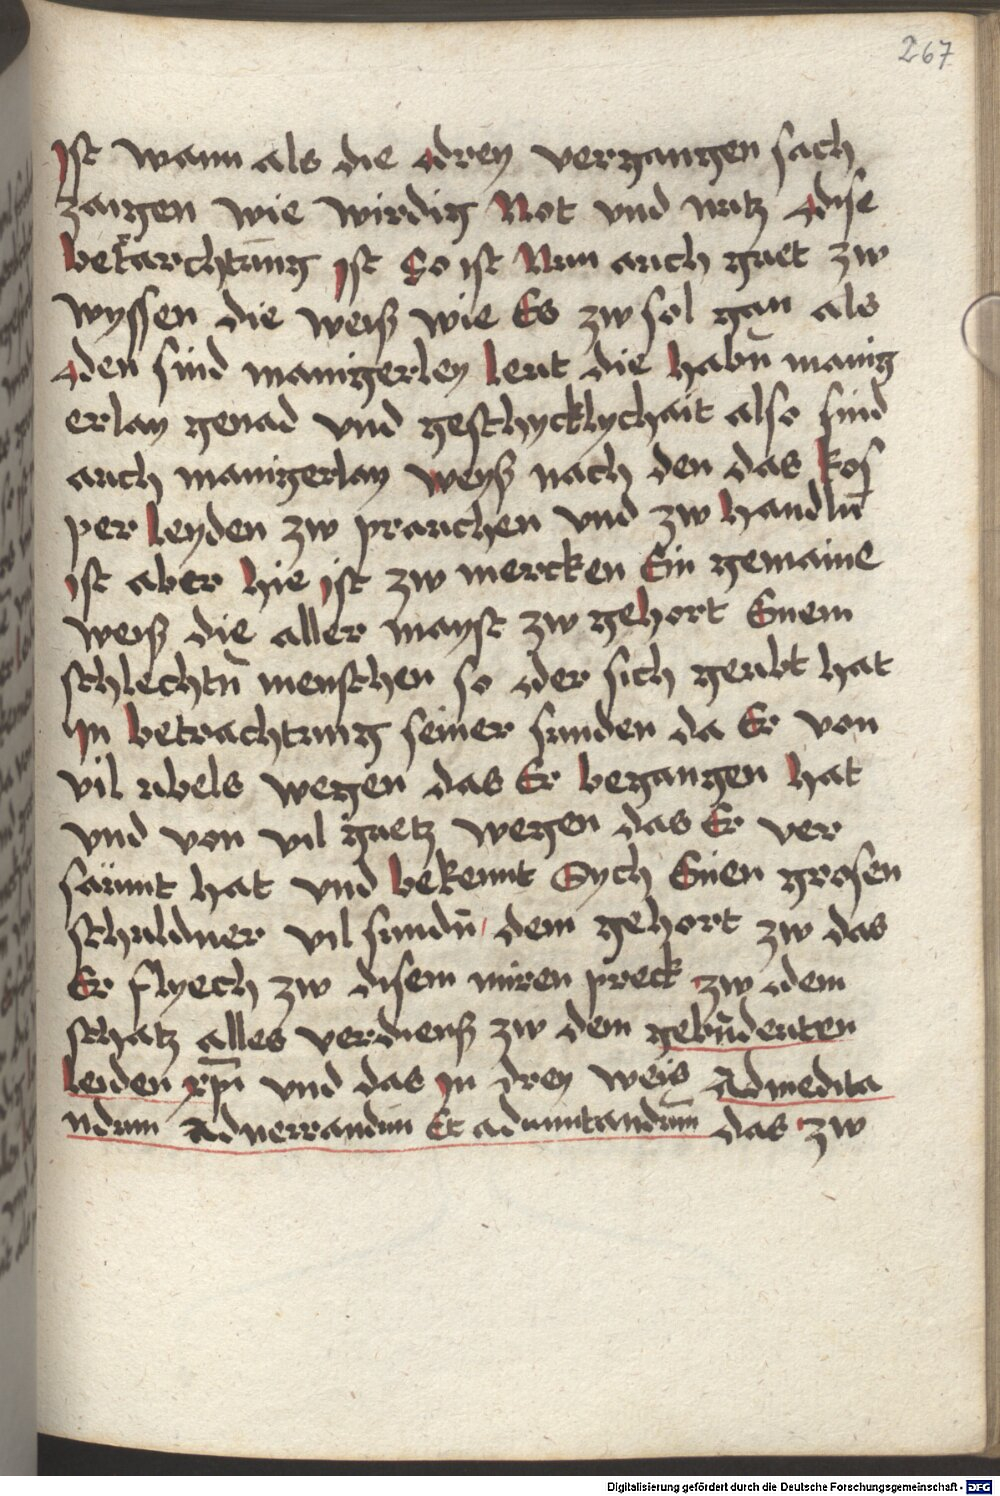 267
Ist wann als die drey vergangen sach
zaigen wie wirdig Not vnd nutz dise
bekarchtung ist So ist Nun auch guet zw
wyssen die weiß wie Es zw sol gan als
den sind manigerley leut die habn̄ manig
erlay genad vnd geschycklychait also sind
auch manigerlay weyß nach den das kos
per leyden zw prauchen vnd zw handln̄
ist aber hie ist zw mercken Ein gemaine
weiß die aller mayst zw gehort Einem
schlechtn̄ menschen so der sich geubt hat
In betrachtung seiner sunden da Er von
vil ubels wegen das Er begangen hat
vnd von vil guetz wegen das Er ver
säumt hat vnd bekennt Sych Einen grosen
schuldner vil sundn̄ dem gehort zw das
Er flyech zw disem preck zw dem
schatz alles verdienß zw dem gebn̄deuten
leiden xp̄i vnd das in drey weis Ad medita
ndum Ad Et ad das zw
Digitalisierung gefördert durch die Deutsche Forschungsgemeinschaft - DFG